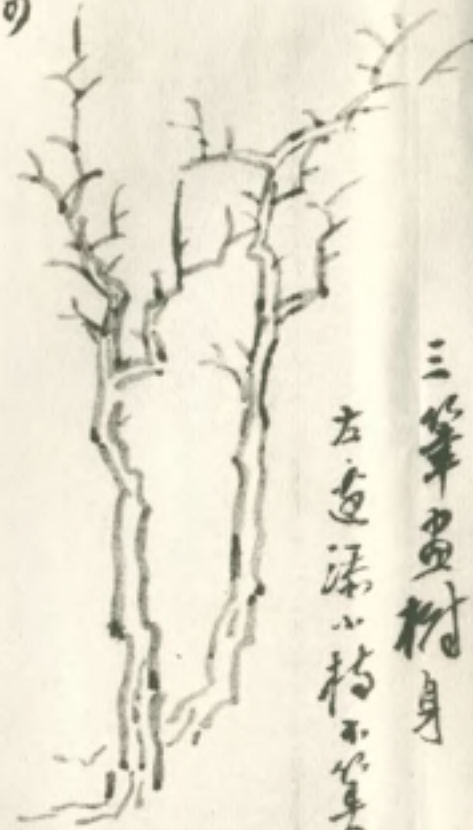 三筆畫樹身
左邊添小枝不算